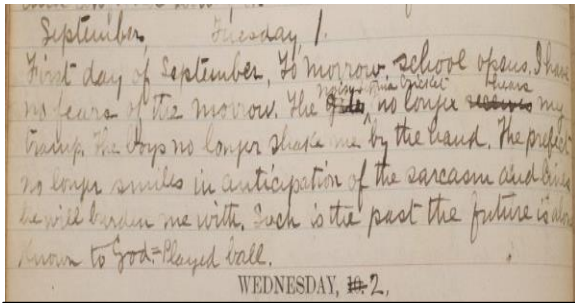 September, Tuesday, 1.
First day of September, To morrow school opens. I have
no fears of the morrow. The noisy Erie Cricket no longer hears my
tramp. The boys no longer shake me by the hand. The prefect
no longer smiles in anticipation of the sarcasm and lines
he will burden me with. Such is the past the future is alone
known to God. = Played ball.
WEDNESDAY, 10. 2,